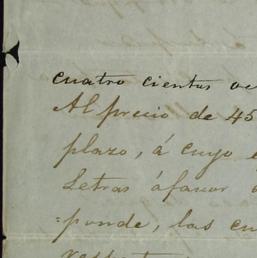 cuatro cientos oc
Al precio de 45
plazo, á cuyo
Letras áfavor
=ponde, las cu